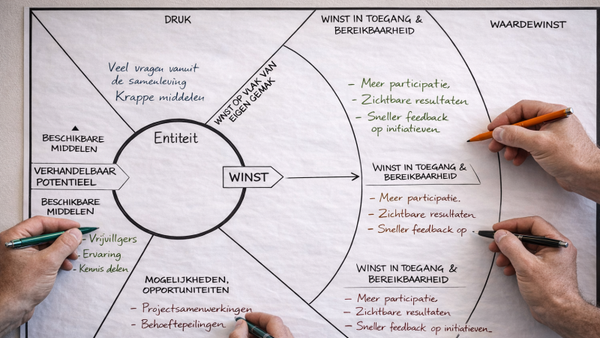 DRUK
Veel vragen vanuit
de samenleving
Krappe middelen
WINST OP VLAK VAN
EIGEN GEMAK
WINST IN TOEGANG &
BEREIKBAARHEID
WAARDEWINST
- Meer participatie.
- Zichtbare resultaten
- Sneller feedback
op initiatieven.
▲
BESCHIKBARE
MIDDELEN
VERHANDELBAAR
POTENTIEEL
BESCHIKBARE
MIDDELEN
- Vrijuillgers
- Ervaring
- Kennis delen
Entiteit
WINST
WINST IN TOEGANG &
BEREIKBAARHEID
- Meer participatie.
- Zichtbare resultaten
- Sneller feedback op
MOGELIJKHEDEN,
OPPORTUNITEITEN
- Projectsamenwerkingen
- Behoeftepeilingen
WINST IN TOEGANG &
BEREIKBAARHEID
- Meer participatie.
- Zichtbare resultaten
- Sneller feedback op initiatieven.